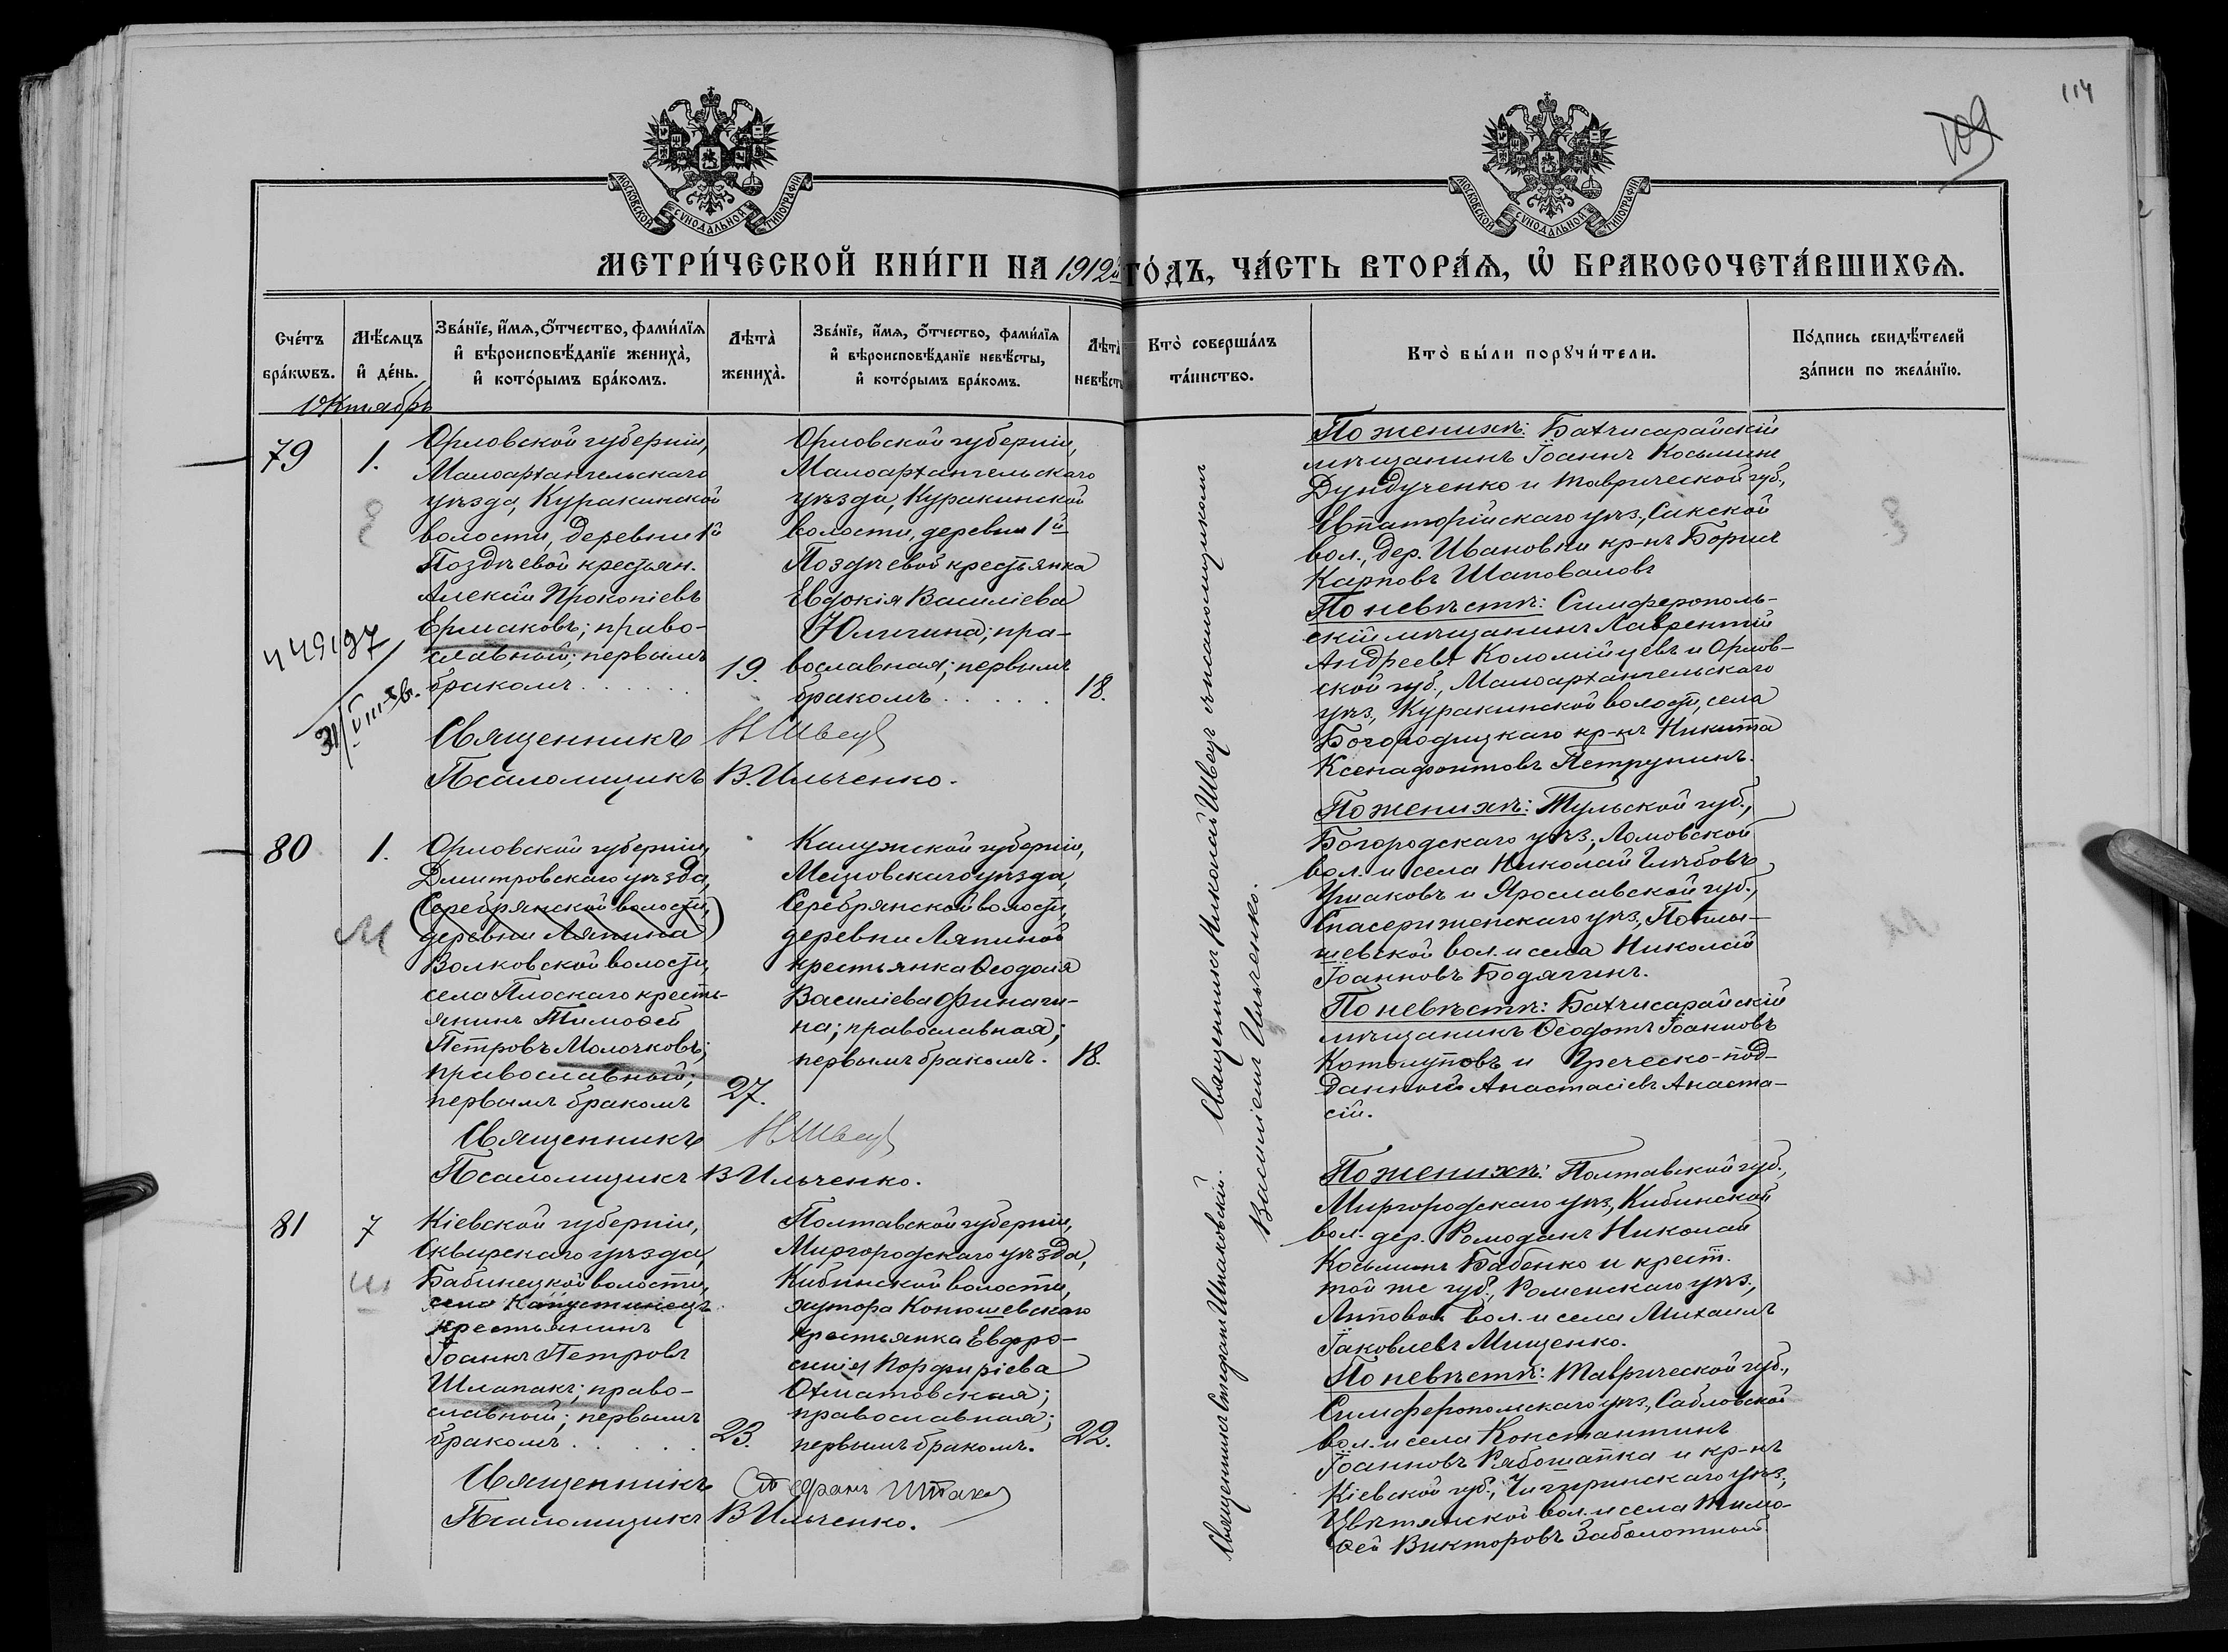 114
109
МОСКОВСКОЙ СУНОДАЛЬНОЙ ТИПОГРАФІИ
МОСКОВСКОЙ СУНОДАЛЬНОЙ ТИПОГРАФІИ
МЕТРИ́ЧЕСКОЙ КНИ́ГИ НА 1912й ГО́ДЪ, ЧА́СТЬ ВТОРА́Ѧ, Ѽ БРАКОСОЧЕТА́ВШИХСѦ.
Сче́тъ бра́кѡвъ.
Мѣ́сѧцъ и҆ де́нь.
Зва́нїе, и҆́мѧ, ѻ҆́тчество, фами́лїѧ и҆ вѣроисповѣ́данїе жениха̀, и҆ кото́рымъ бра́комъ.
Лѣта̀ жениха̀.
Зва́нїе, и҆́мѧ, ѻ҆́тчество, фами́лїѧ и҆ вѣроисповѣ́данїе невѣ́сты, и҆ кото́рымъ бра́комъ.
Лѣта̀ невѣ́сты
Кто̀ соверша́лъ та́инство.
Кто̀ бы́ли порꙋчи́тели.
По́дпись свидѣ́телей за́писи по жела́нїю.
Октябрь
79
1.
Орловской губерніи,
Малоархангельскаго
уѣзда, Куракинской
волости, деревни 1й
Поздѣевой крестьян.
Алексій Прокопіевъ
Ермаковъ; право-
славный; первымъ
бракомъ . . . . . .
19.
Орловской губерніи,
Малоархангельскаго
уѣзда, Куракинской
волости, деревни 1й
Поздѣевой крестьянка
Евдокія Василіева
Юлигина; пра-
вославная; первымъ
бракомъ . . . . .
18.
Священникъ Н Швец
Псаломщикъ В. Ильченко.
По женихѣ: Бахчисарайскій
мѣщанинъ Іоаннъ Косьминъ
Дундученко и Таврической губ.,
Евпаторійскаго уѣз., Сакской
вол., дер. Ивановки кр-нъ Борисъ
Карповъ Шаповаловъ
По невѣстѣ: Симферополь-
скій мѣщанинъ Лаврентій
Андреевъ Коломійцевъ и Орлов-
ской губ., Малоархангельскаго
уѣз., Куракинской волости, села
Богородицкаго кр-нъ Никита
Ксенафонтовъ Петрунинъ.
80
1.
М
Орловской губерніи,
Дмитровскаго уѣзда,
(Серебрянской волости,
деревни Ляпина)
Волковской волости,
села Плоскаго кресть-
янинъ Тимоѳей
Петровъ Молочковъ;
православный;
первымъ бракомъ
27.
Калужской губерніи,
Мещовскаго уѣзда,
Серебрянской волости,
деревни Ляпиной
крестьянка Ѳеодосія
Василіева Финаги-
на; православная;
первымъ бракомъ.
18.
Священникъ Н Швец
Псаломщикъ В Ильченко.
По женихѣ: Тульской губ.,
Богородскаго уѣз., Ломовской
вол. и села Николай Глѣбовъ
Ушаковъ и Ярославской губ.,
шевской вол. и села Николай
Іоанновъ Бодягинъ.
По невѣстѣ: Бахчисарайскій
мѣщанинъ Ѳеодотъ Іоанновъ
Котолуповъ и Греческо-под-
данный Анастасіевъ Анаста-
сій.
81
7
Ш
Кіевской губерніи,
Сквирскаго уѣзда,
Бабинецкой волости,
села Капустинецъ
крестьянинъ
Іоаннъ Петровъ
Шлапакъ; право-
славный; первымъ
бракомъ . . . . . .
23.
Полтавской губерніи,
Миргородскаго уѣзда,
Кибинской волости,
хутора Конюшевскаго
крестьянка Евфро-
синія Порфиріева
Охматовская;
православная;
первымъ бракомъ.
22.
Священникъ Стефанъ Шпаков
Псаломщикъ В Ильченко.
По женихѣ: Полтавской губ.,
Миргородскаго уѣз., Кибинской
вол. дер. Ромоданъ Николай
Косьминъ Бабенко и крест.
той же губ., Роменскаго уѣз.,
Липовой вол. и села Михаилъ
Іаковлевъ Мищенко.
По невѣстѣ: Таврической губ.,
Симферопольскаго уѣз., Сабловской
вол. и села Константинъ
Іоанновъ Рябошапка и кр-нъ
Кіевской губ., Чигиринскаго уѣз.,
Цвѣтянской вол. и села Тимо-
ѳей Викторовъ Заболотный
Священникъ Стефанъ Шпаковскій. Священникъ Николай Швецъ съ псаломщикомъ
Василіемъ Ильченко.